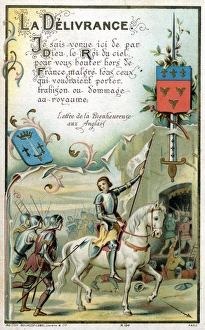 LA DÉLIVRANCE.
Je suis venue ici de par
Dieu, le Roi du ciel,
pour vous bouter hors de
France, malgré tous ceux,
qui voudraient porter,
trahison ou dommage
au royaume;
Lettre de la Bienheureuse
aux Anglais
PARIS